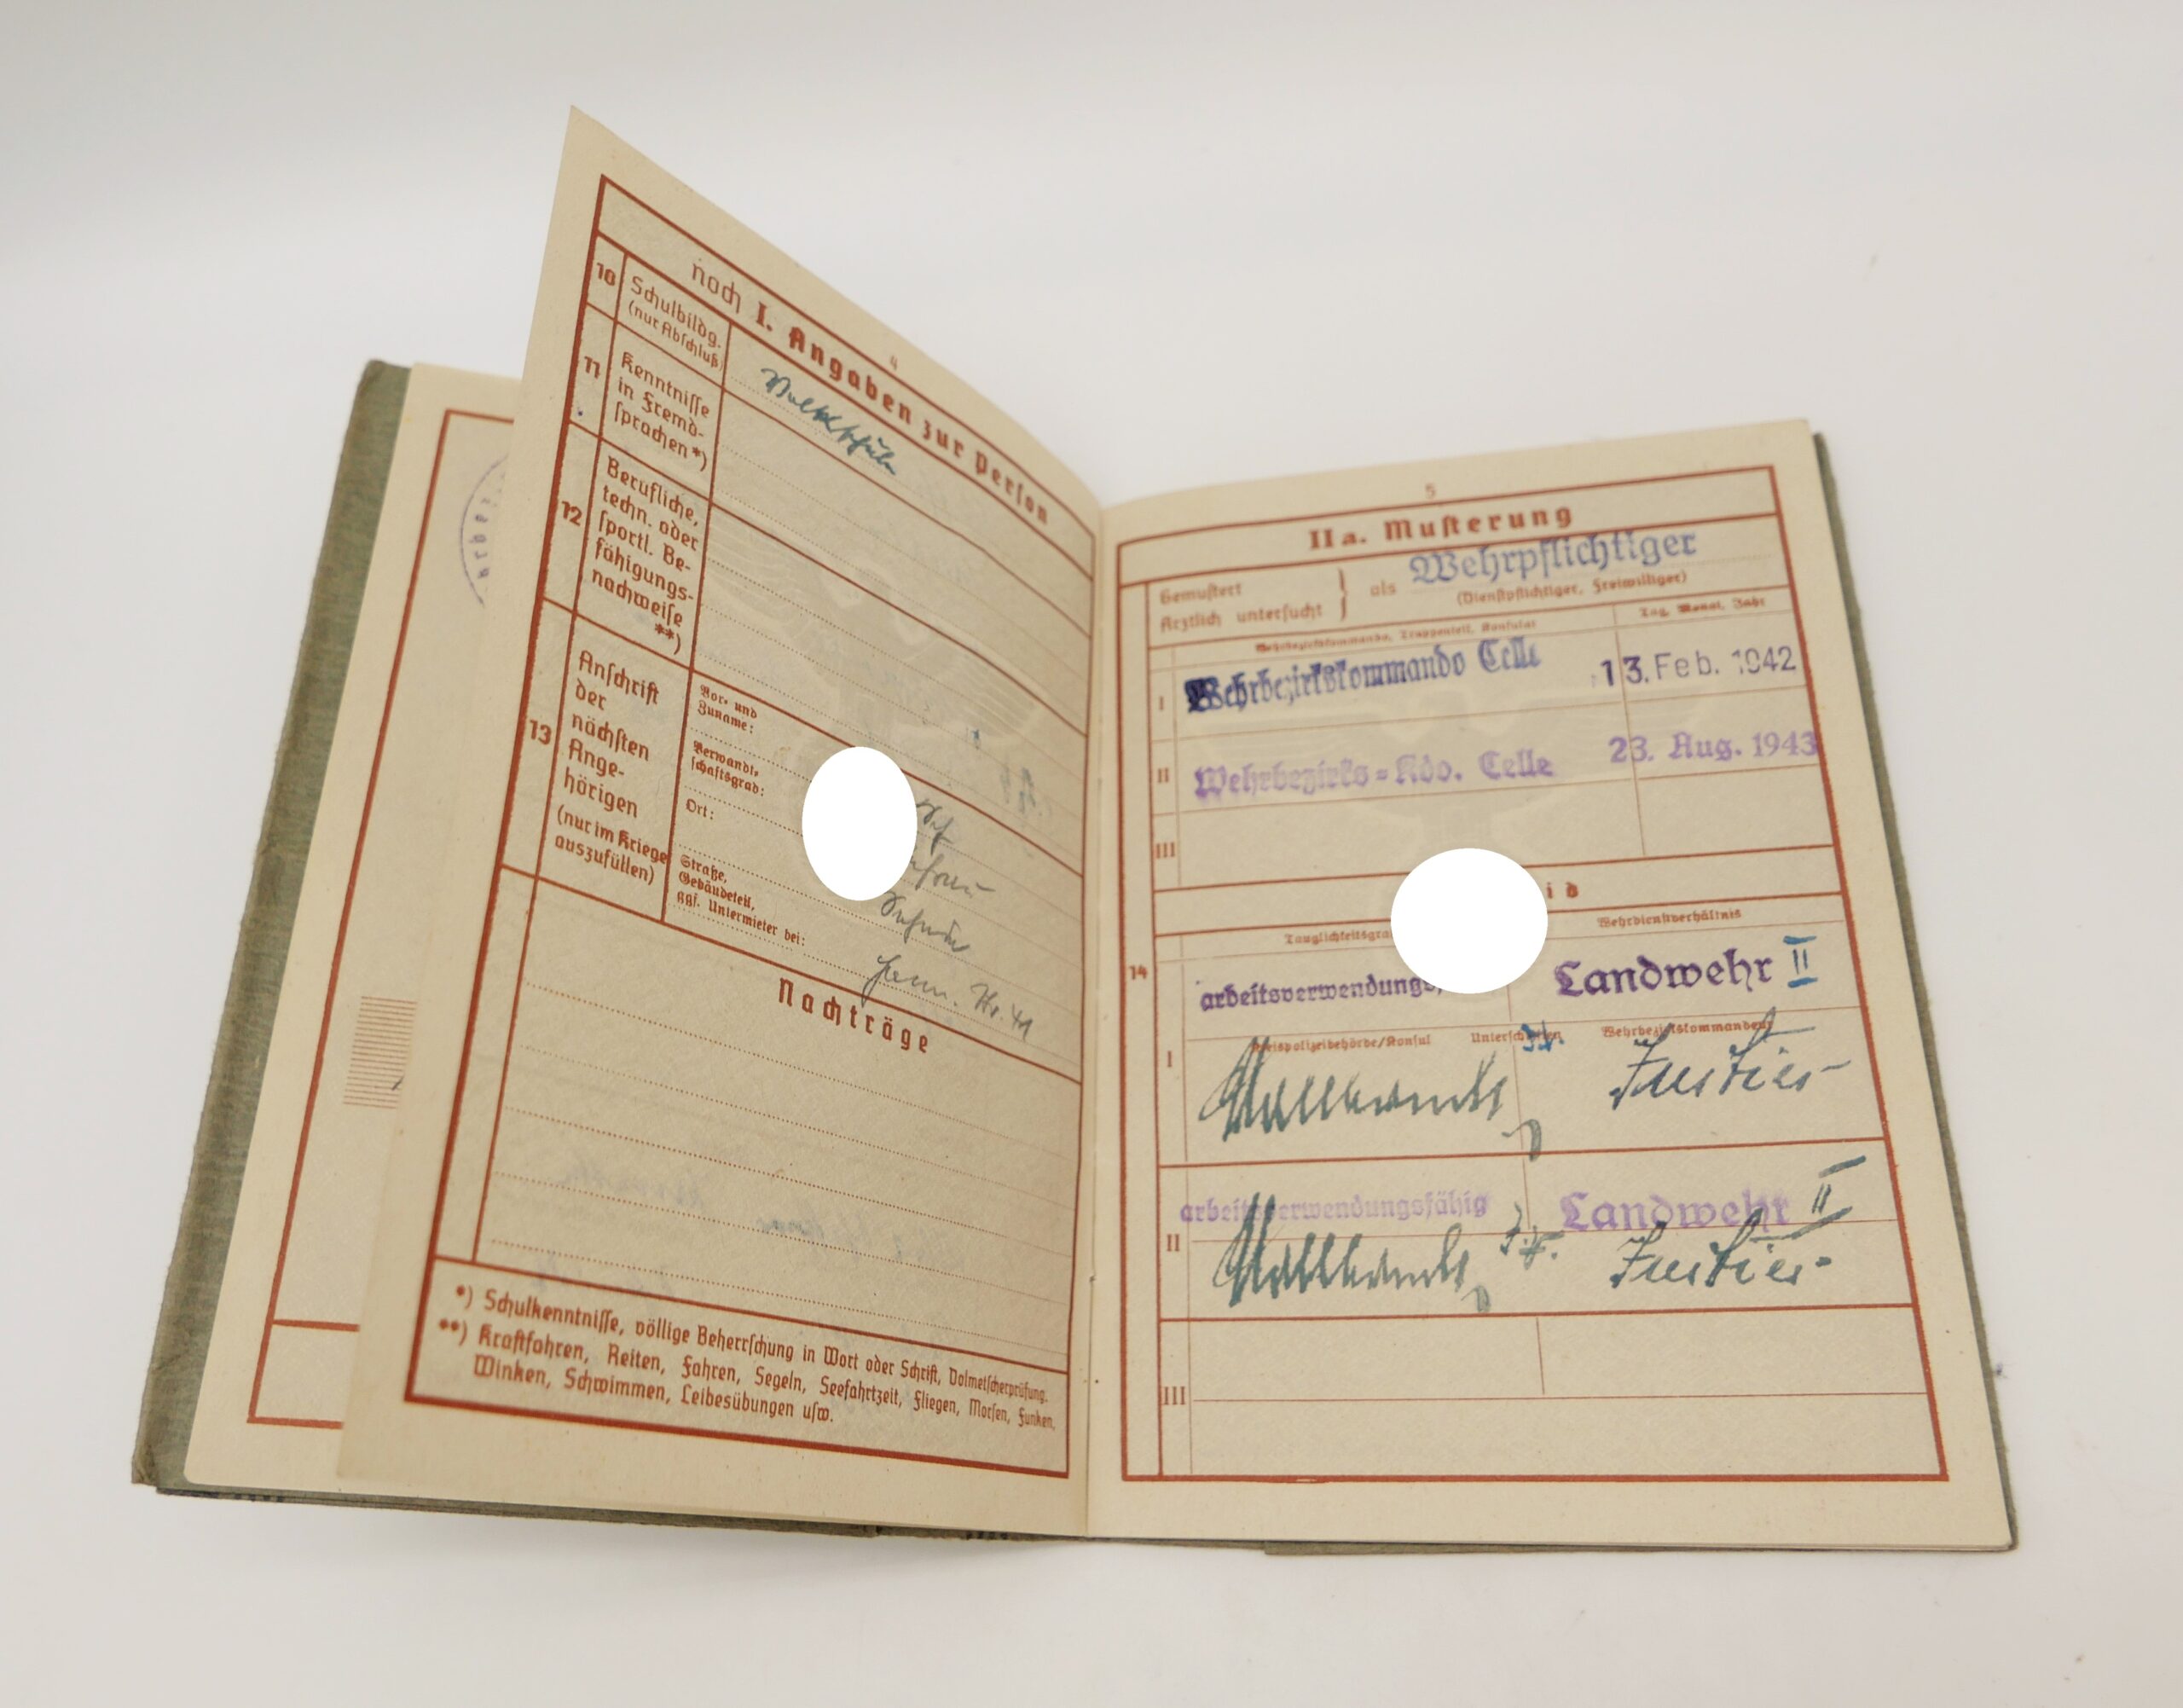 4
noch I. Angaben zur Person
10
Schulbildg.
(nur Abschluß)
Volksschule
11
Kenntnisse
in Fremd-
sprachen*)
12
Berufliche,
techn. oder
sportl. Be-
fähigungs-
nachweise
**)
13
Anschrift
der
nächsten
Ange-
hörigen
(nur im Kriege
auszufüllen)
Vor- und
Zuname:
Verwandt-
schaftsgrad:
Ort:
Straße,
Gebäudeteil,
ggf. Untermieter bei:
Nr. 41
Nachträge
*) Schulkenntnisse, völlige Beherrschung in Wort oder Schrift, Dolmetscherprüfung.
**) Kraftfahren, Reiten, Fahren, Segeln, Seefahrtzeit, Fliegen, Morsen, Funken,
Winken, Schwimmen, Leibesübungen usw.
5
IIa. Musterung
Gemustert
Ärztlich untersucht } als Wehrpflichtiger
(Dienstpflichtiger, Freiwilliger)
Wehrbezirkskommando, Truppenteil, Konsulat
Tag, Monat, Jahr
I
Wehrbezirkskommando Celle
13. Feb. 1942
II
Wehrbezirks-Kdo. Celle
23. Aug. 1943
III
id
14
Tauglichkeitsgra
Wehrdienstverhältnis
arbeitsverwendungs
Landwehr II
I
Kreispolizeibehörde/Konsul
Unterschriften
Wehrbezirkskommandeur
II
arbeitsverwendungsfähig
Landwehr II
III